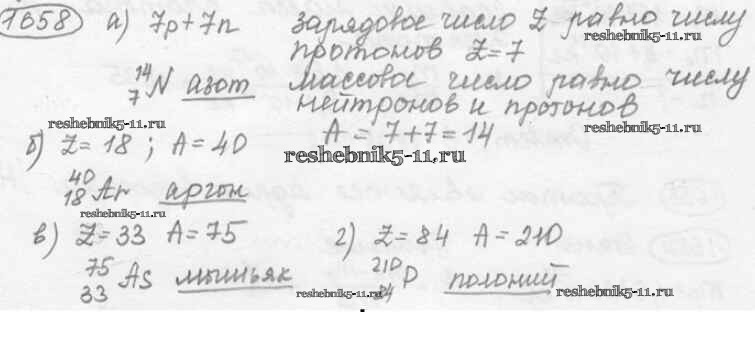 1658 а) 7p+7n зарядовое число Z равно числу
reshebnik5-11.ru
протонов Z=7
¹⁴₇N азот массовое число равно числу
нейтронов и протонов
reshebnik5-11.ru reshebnik5-11.ru
A = 7+7=14
б) Z=18 ; A=40
reshebnik5-11.ru
⁴⁰₁₈Ar аргон
reshebnik5-11.ru
в) Z=33 A=75 г) Z=84 A=210
⁷⁵₃₃As мышьяк ²¹⁰₈₄P полоний
reshebnik5-11.ru reshebnik5-11.ru